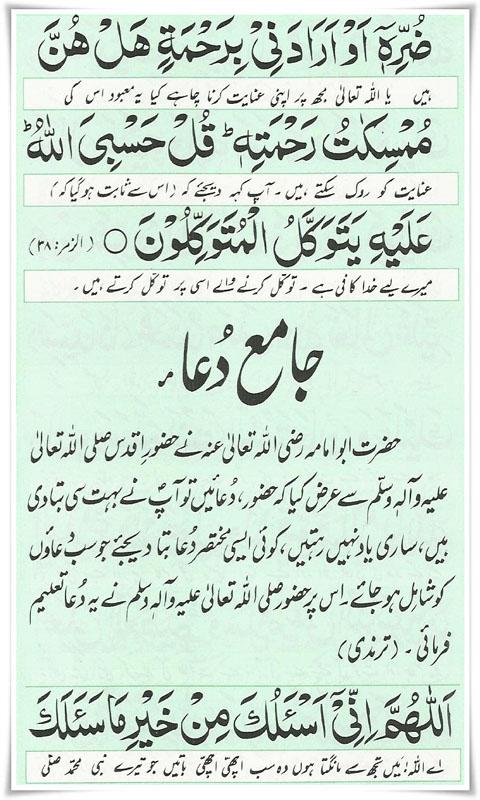 ضُرِّهٖٓ اَوْ اَرَادَنِىْ بِرَحْمَةٍ هَلْ هُنَّ
ہیں یا اللہ تعالیٰ مجھ پر اپنی عنایت کرنا چاہے کیا یہ معبود اس کی
مُمْسِكٰتُ رَحْمَتِهٖ ؕ قُلْ حَسْبِىَ اللّٰهُ ؕ
عنایت کو روک سکتے ہیں۔ آپ کہہ دیجئے کہ (اس سے ثابت ہو گیا کہ)
عَلَيْهِ يَتَوَكَّلُ الْمُتَوَكِّلُوْنَ ○ (الزمر: ۳۸)
میرے لیے خدا کافی ہے۔ توکل کرنے والے اسی پر توکل کرتے ہیں۔
جامع دُعا
حضرت ابو امامہ رضی اللہ تعالیٰ عنہ نے حضورِ اقدس صلی اللہ تعالیٰ
علیہ وآلہٖ وسلّم سے عرض کیا کہ حضور، دُعائیں تو آپؐ نے بہت سی بتا دی
ہیں، ساری یاد نہیں رہتیں، کوئی ایسی مختصر دُعا بتا دیجئے جو سب دُعاؤں
کو شامل ہو جائے۔ اس پر حضور صلی اللہ تعالیٰ علیہ وآلہٖ وسلم نے یہ دُعا تعلیم
فرمائی۔ (ترمذی)
اَللّٰهُمَّ اِنِّىْٓ اَسْئَلُكَ مِنْ خَيْرِ مَا سَئَلَكَ
اے اللہ! میں تجھ سے مانگتا ہوں وہ سب اچھی اچھی باتیں جو تیرے نبی محمد صلی